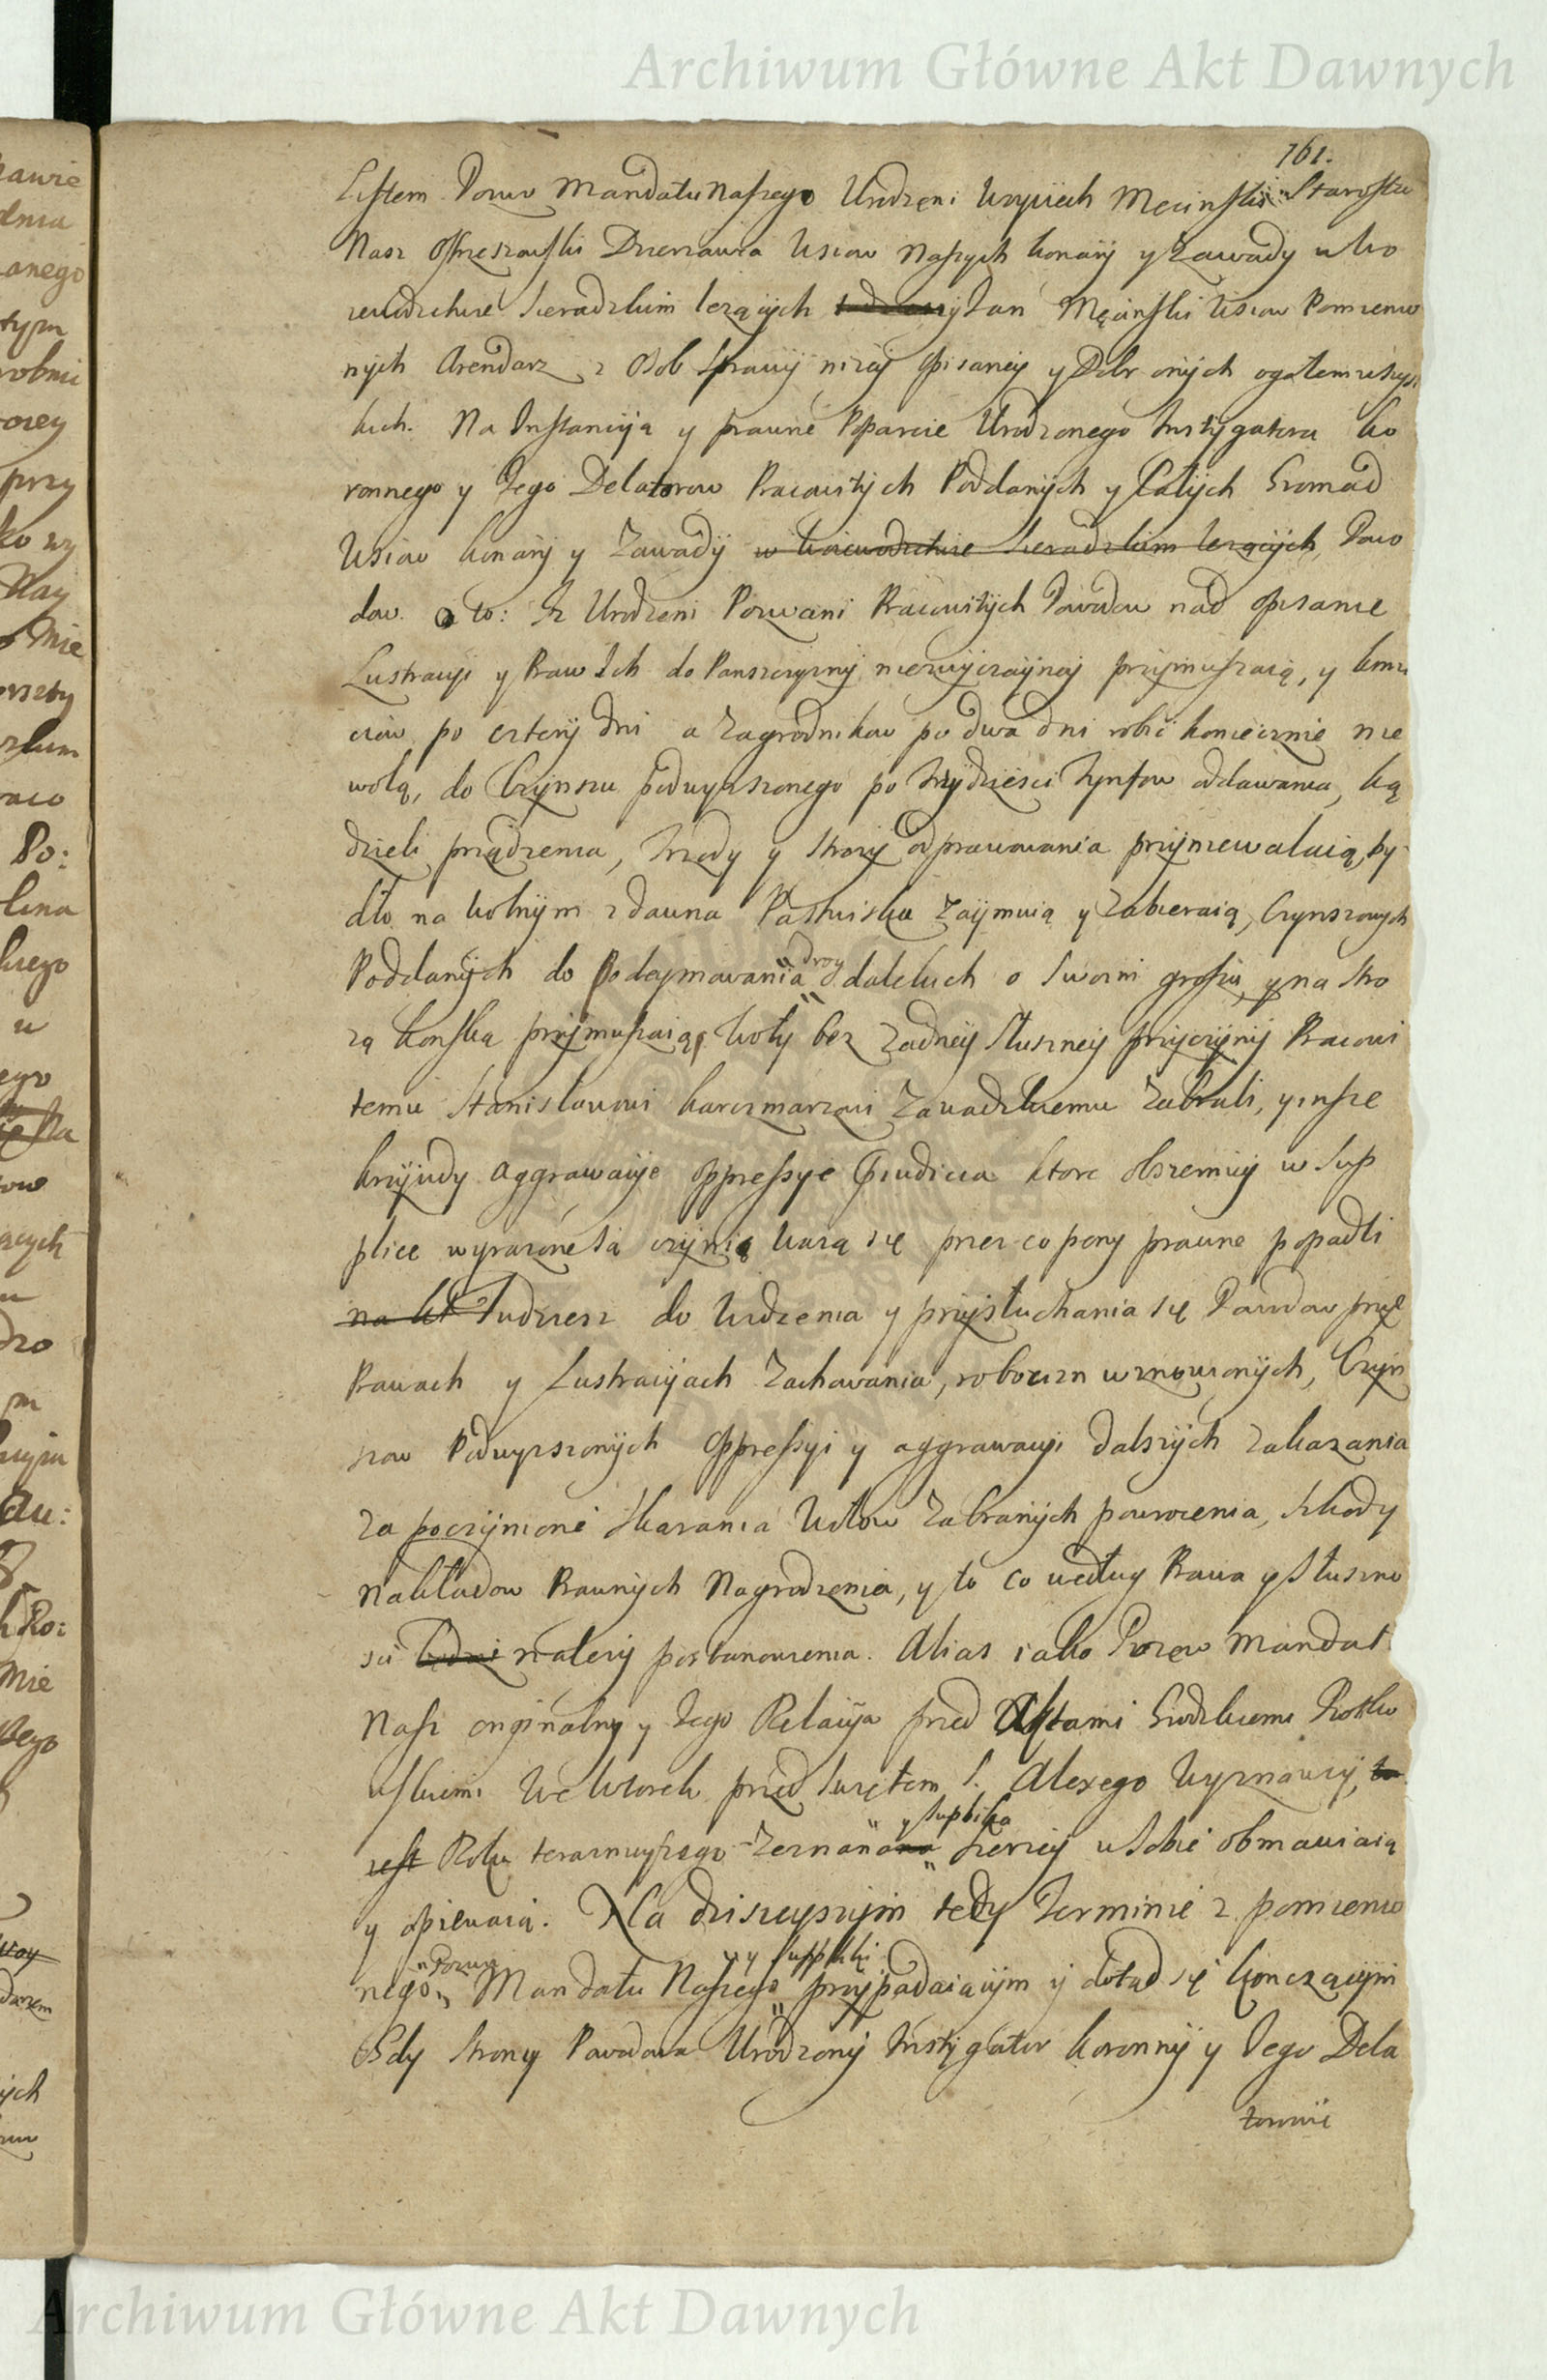 Archiwum Główne Akt Dawnych
761.
Listem Pozwu Mandatu Naszego Urodzeni Woyciech Mecinski Starosta
Nasz Ostrzeszowski Dzierzawca Wsiow Naszych Konary y Zawady w Wo
iewodztwie Sieradzkim lezących y Jan Męcinski Wsiow Pomienio
nych Arendarz z Osob sprawy nizey opisaney y Dobr onych ogołem wszyst
kich. Na Instancyą y prawne Poparcie Urodzonego Instygatora Ko
ronnego y Jego Delatorow Pracowitych Poddanych y Całych Gromad
Wsiow Konary y Zawady w Woiewodztwie Sieradzkim lezących, Powo
dow. o to: Iz Urodzeni Pozwani Pracowitych Powodow nad opisanie
Lustracyi y Praw Ich do Panszczyzny niezwyczayney przymuszaią, y kmie
ciow po cztery dni a Zagrodnikow po dwa dni robic koniecznie nie
wolą, do Czynszu podwyzszonego po trzydziesci Tynfow oddawania, ką
dzieli prządzenia, Trzody y strozy odprawowania przyniewalaią, by
dło na wolnym zdawna Pastwisku Zaymuią y Zabieraią, Czynszowych
Poddanych do Podeymowania drog dalekich o Swoim groszu, y na stro
zą konską przymuszaią, woły bez Zadney Słuszney przyczyny Pracowi
temu Stanisławowi karczmarzowi Zawadzkiemu Zabrali, y insze
krzywdy aggrawacye oppressye Praeiudicia ktore obszerniey w Sup
plice wyrazone są czynią wazą się przez co peny prawne popadli
na kt Tudziesz do widzenia y przysłuchania się Powodow przy
Prawach y Lustracyjach Zachowania, roboczn wznowionych, Czyn
szow Podwyzszonych oppressyi y aggrawacyi dalszych Zakazania
Za poczynione Skarania Wołow Zabranych powrocenia, szkody
Nakładow Prawnych Nagrodzenia, y to co według Prawa y Słuszno
sci nalezy postanowienia. Alias iako Pozew Mandat
Nasz oryginalny y Jego Relacya przed Aktami Grodzkiemi Piotrko
wskiemi We Wtorek przed Swiętem S. Alexego Wyznawcy, to
y Supplika
iest Roku terazniejszego Zeznana szerzey w Sobie obmawiaią
y opiewaią. Na dzisieyszym tedy Terminie z pomienio
Pozwu y Suppliki
nego Mandatu Naszego przypadaiącym y dotąd się konczącym
Gdy strony Powodowa Urodzony Instygator koronny y Jego Dela
torowie
Archiwum Główne Akt Dawnych